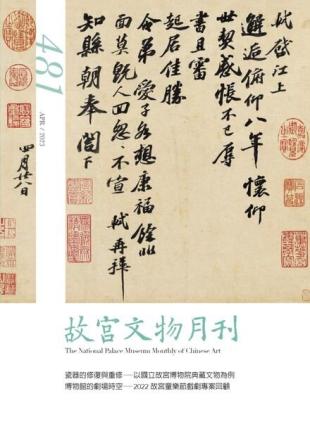 481
APR / 2023
軾啟江上
邂逅俯仰八年懷仰
世契感悵不已辱
書且審
起居佳勝
令弟愛子各想康福餘非
面莫既人回怱怱不宣軾再拜
知縣朝奉閣下
四月廿八日
故宮文物月刊
The National Palace Museum Monthly of Chinese Art
瓷器的修復與重修——以國立故宮博物院典藏文物為例
博物館的劇場時空——2022故宮童樂節戲劇專案回顧